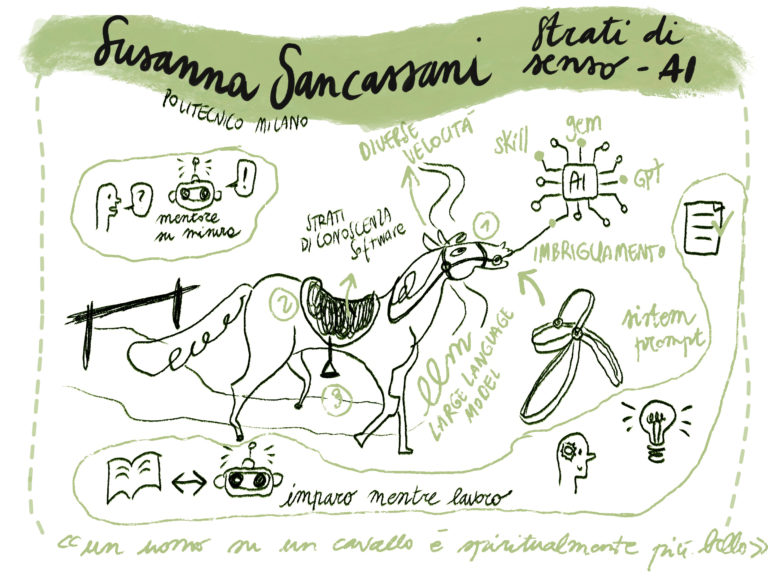 Susanna Sancassani
Strati di
senso - AI
POLITECNICO MILANO
?
!
mentore
su misura
DIVERSE
VELOCITÀ
skill
gem
GPT
AI
STRATI
DI CONOSCENZA
software
1
IMBRIGLIAMENTO
2
3
llm
LARGE LANGUAGE
MODEL
sistem
prompt
imparo mentre lavoro
«un uomo su un cavallo è spiritualmente più bello»